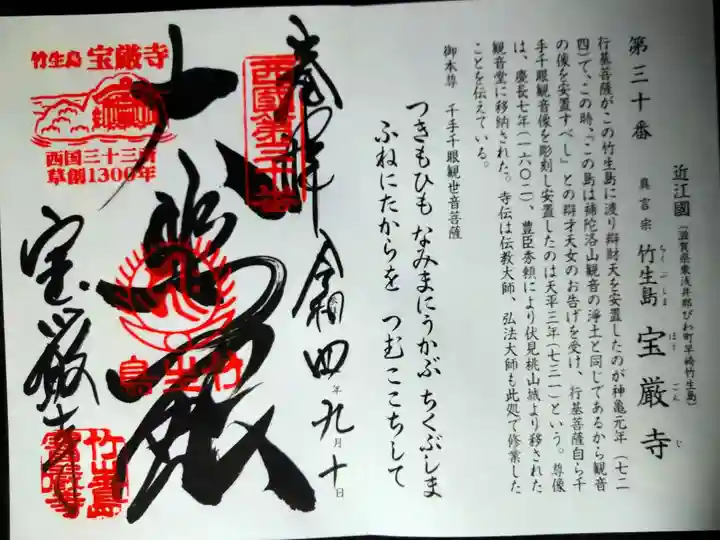 第三十番
近江國(滋賀県東浅井郡びわ町早崎竹生島)
真言宗 竹生島 宝厳寺
ちくぶしま ほうごんじ
行基菩薩がこの竹生島に渡り辯財天を安置したのが神亀元年(七二
四)で、この時、「この島は補陀洛山観音の浄土と同じであるから観音
の像を安置すべし」との辯才天女のお告げを受け、行基菩薩自ら千
手千眼観音像を彫刻し安置したのは天平三年(七三一)という。尊像
は、慶長七年(一六〇二)、豊臣秀頼により伏見桃山城より移された
観音堂に移納された。寺伝は伝教大師、弘法大師も此処で修業した
ことを伝えている。
御本尊 千手千眼観世音菩薩
つきもひも なみまにうかぶ ちくぶしま
ふねにたからを つむここちして
奉拝 令和四年九月十日
西國第三十番
大悲殿
竹生島
竹生島 宝厳寺
西国三十三所
草創1300年
宝厳寺
竹生島
寶厳寺